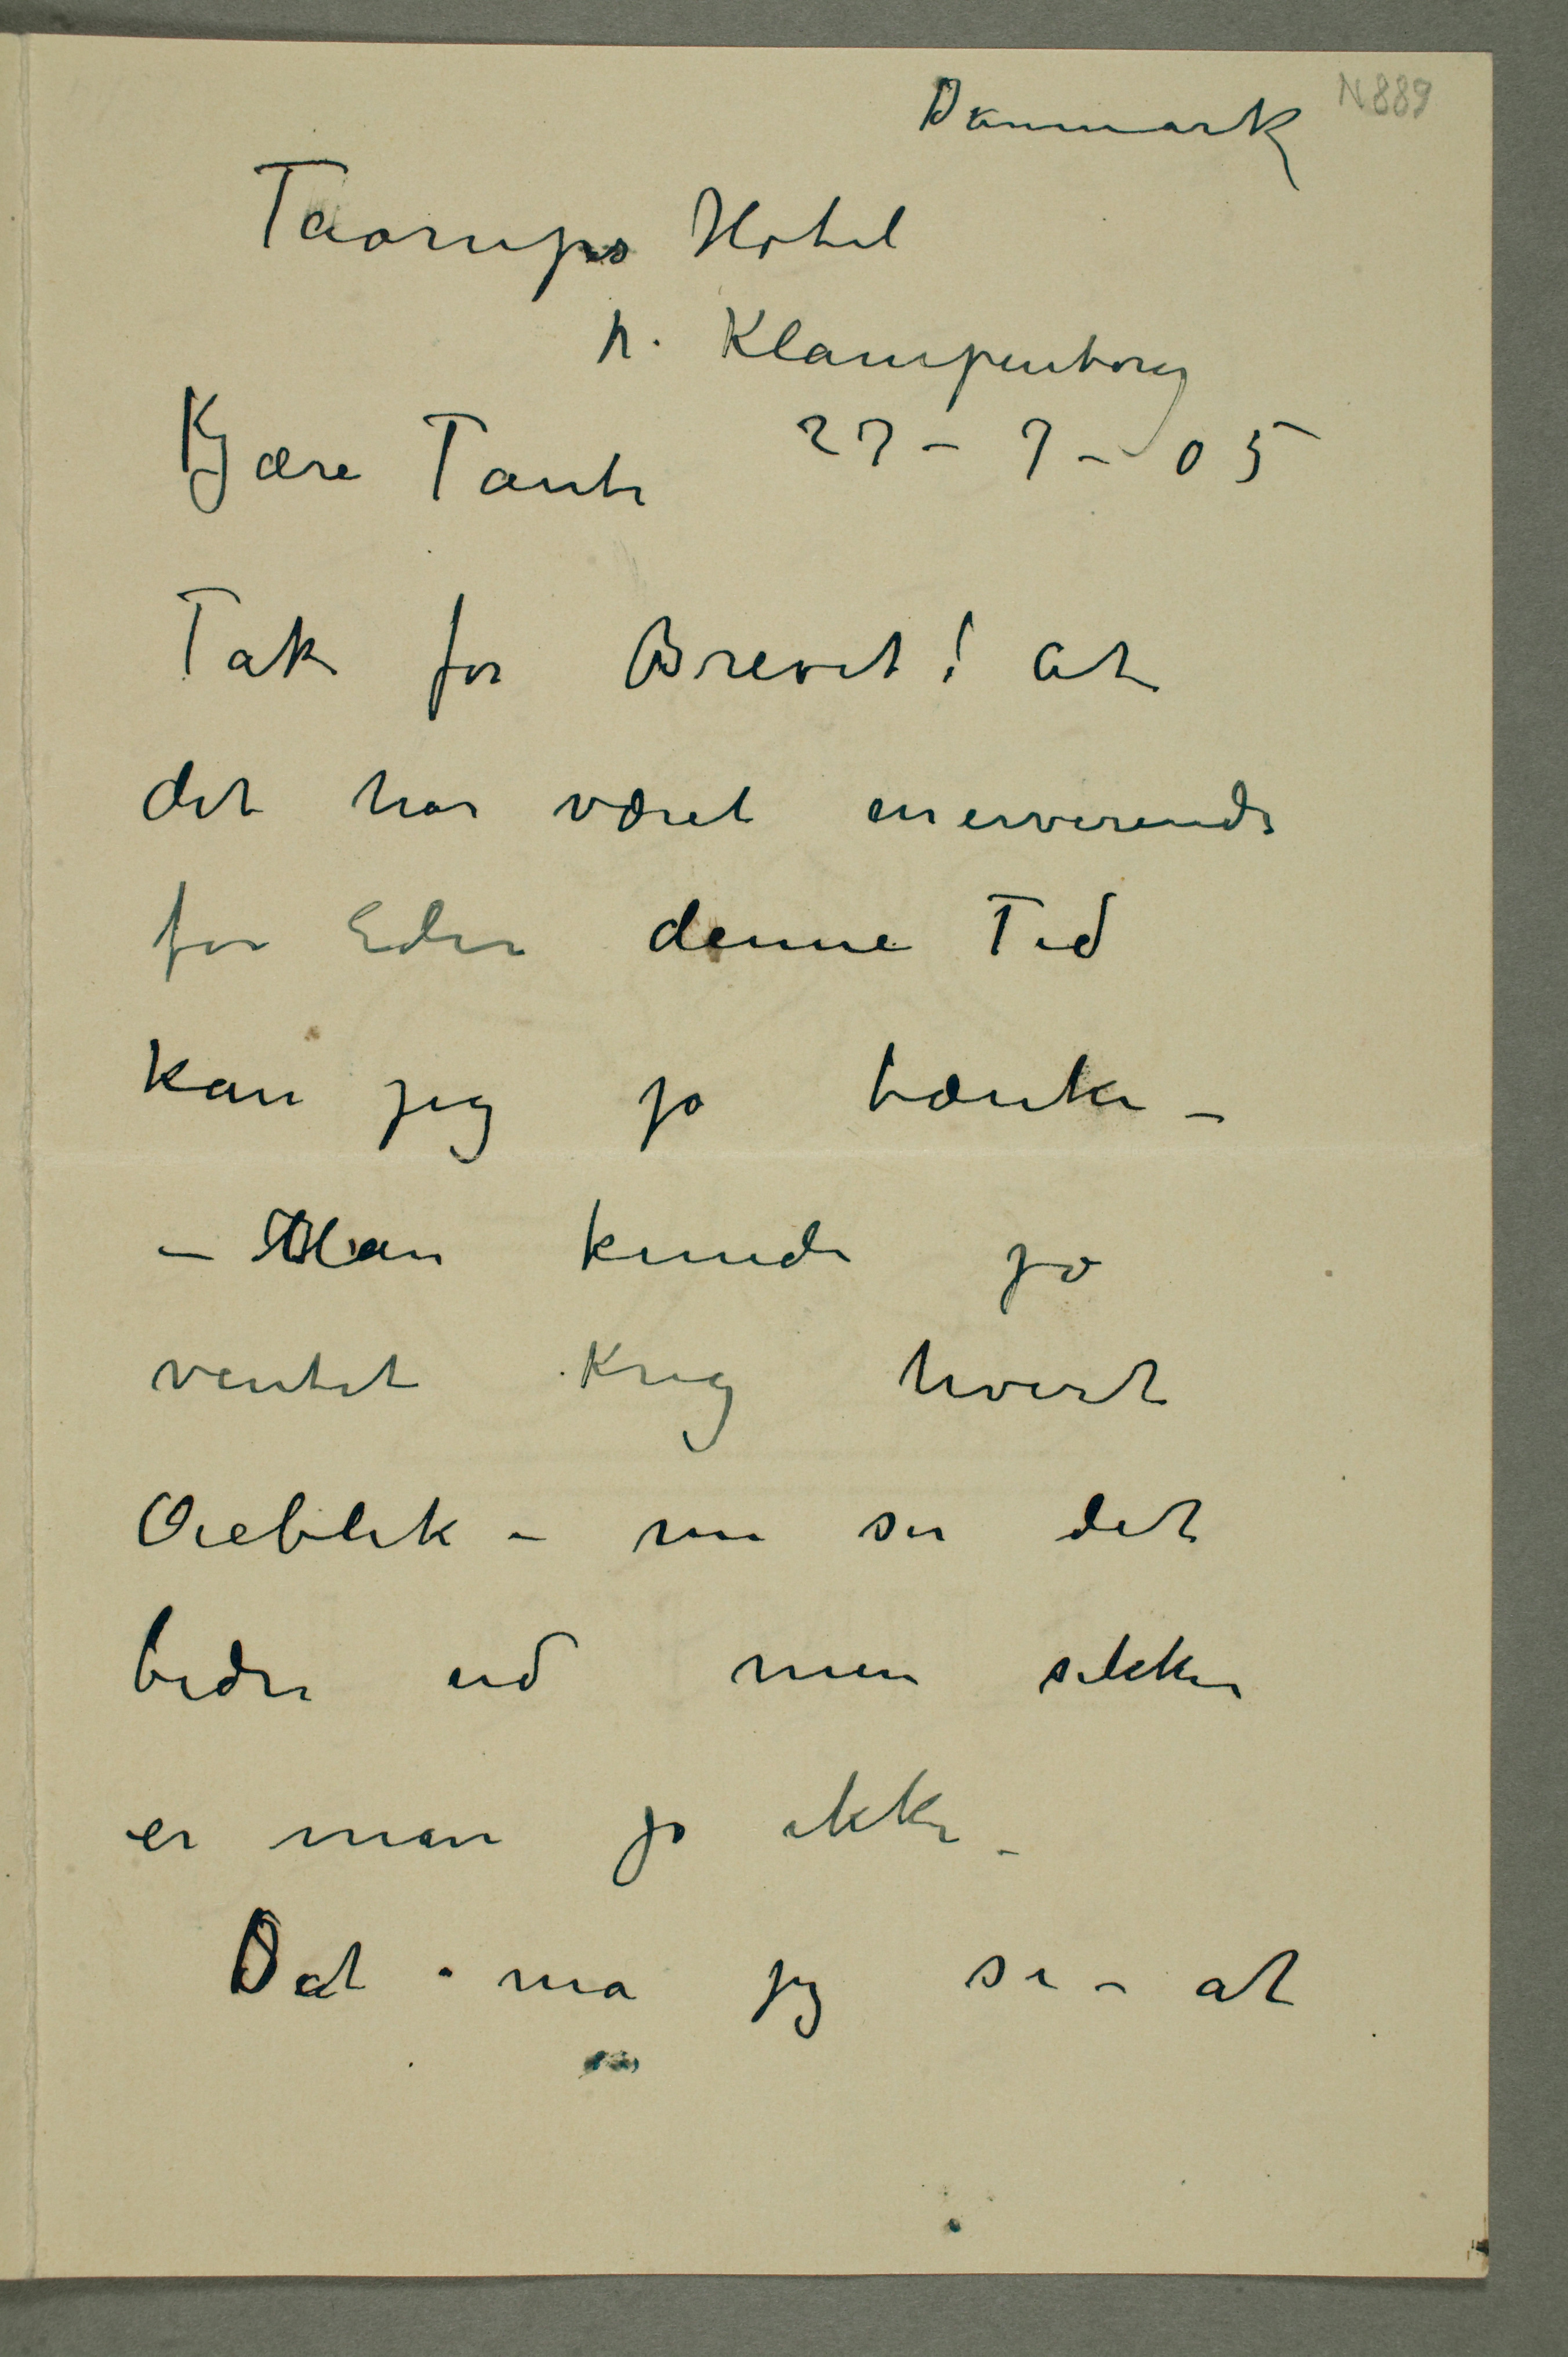 N 889
Danmark
Taarups Hotel
p. Klampenborg
Kjære Tante 27-7-05
Tak for Brevet! At
det har været enerverende
for Eder denne Tid
kan jeg jo tænke –
– Man kunde jo
ventet Krig hvert
Øieblik – nu ser det
bedre ud men sikker
er man jo ikke –
Det må jeg si – at